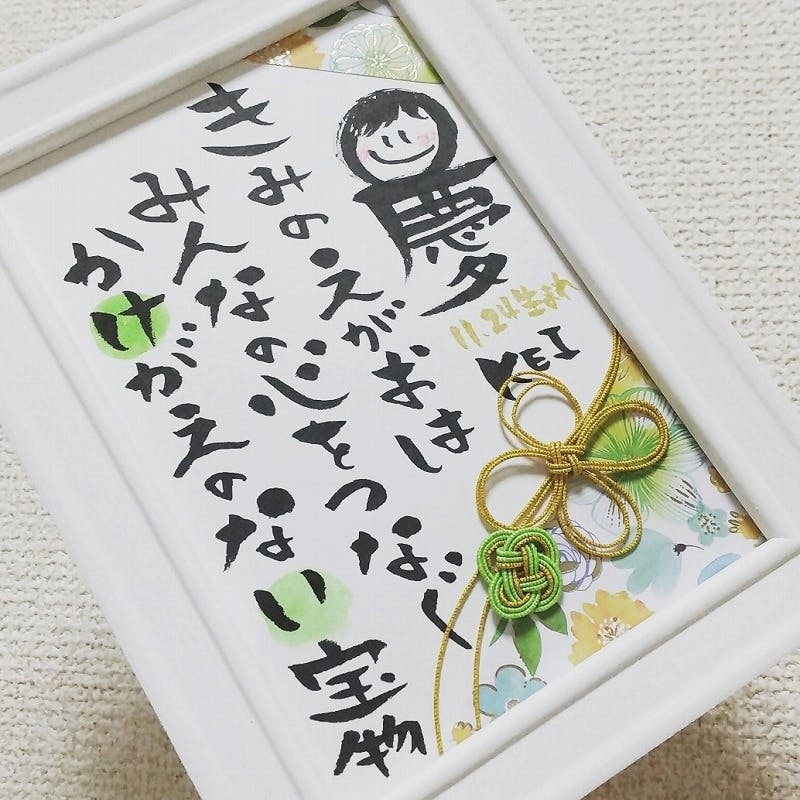 慶
11.24生まれ
KEI
きみのえがおは
みんなの心をつなぐ
かけがえのない宝物